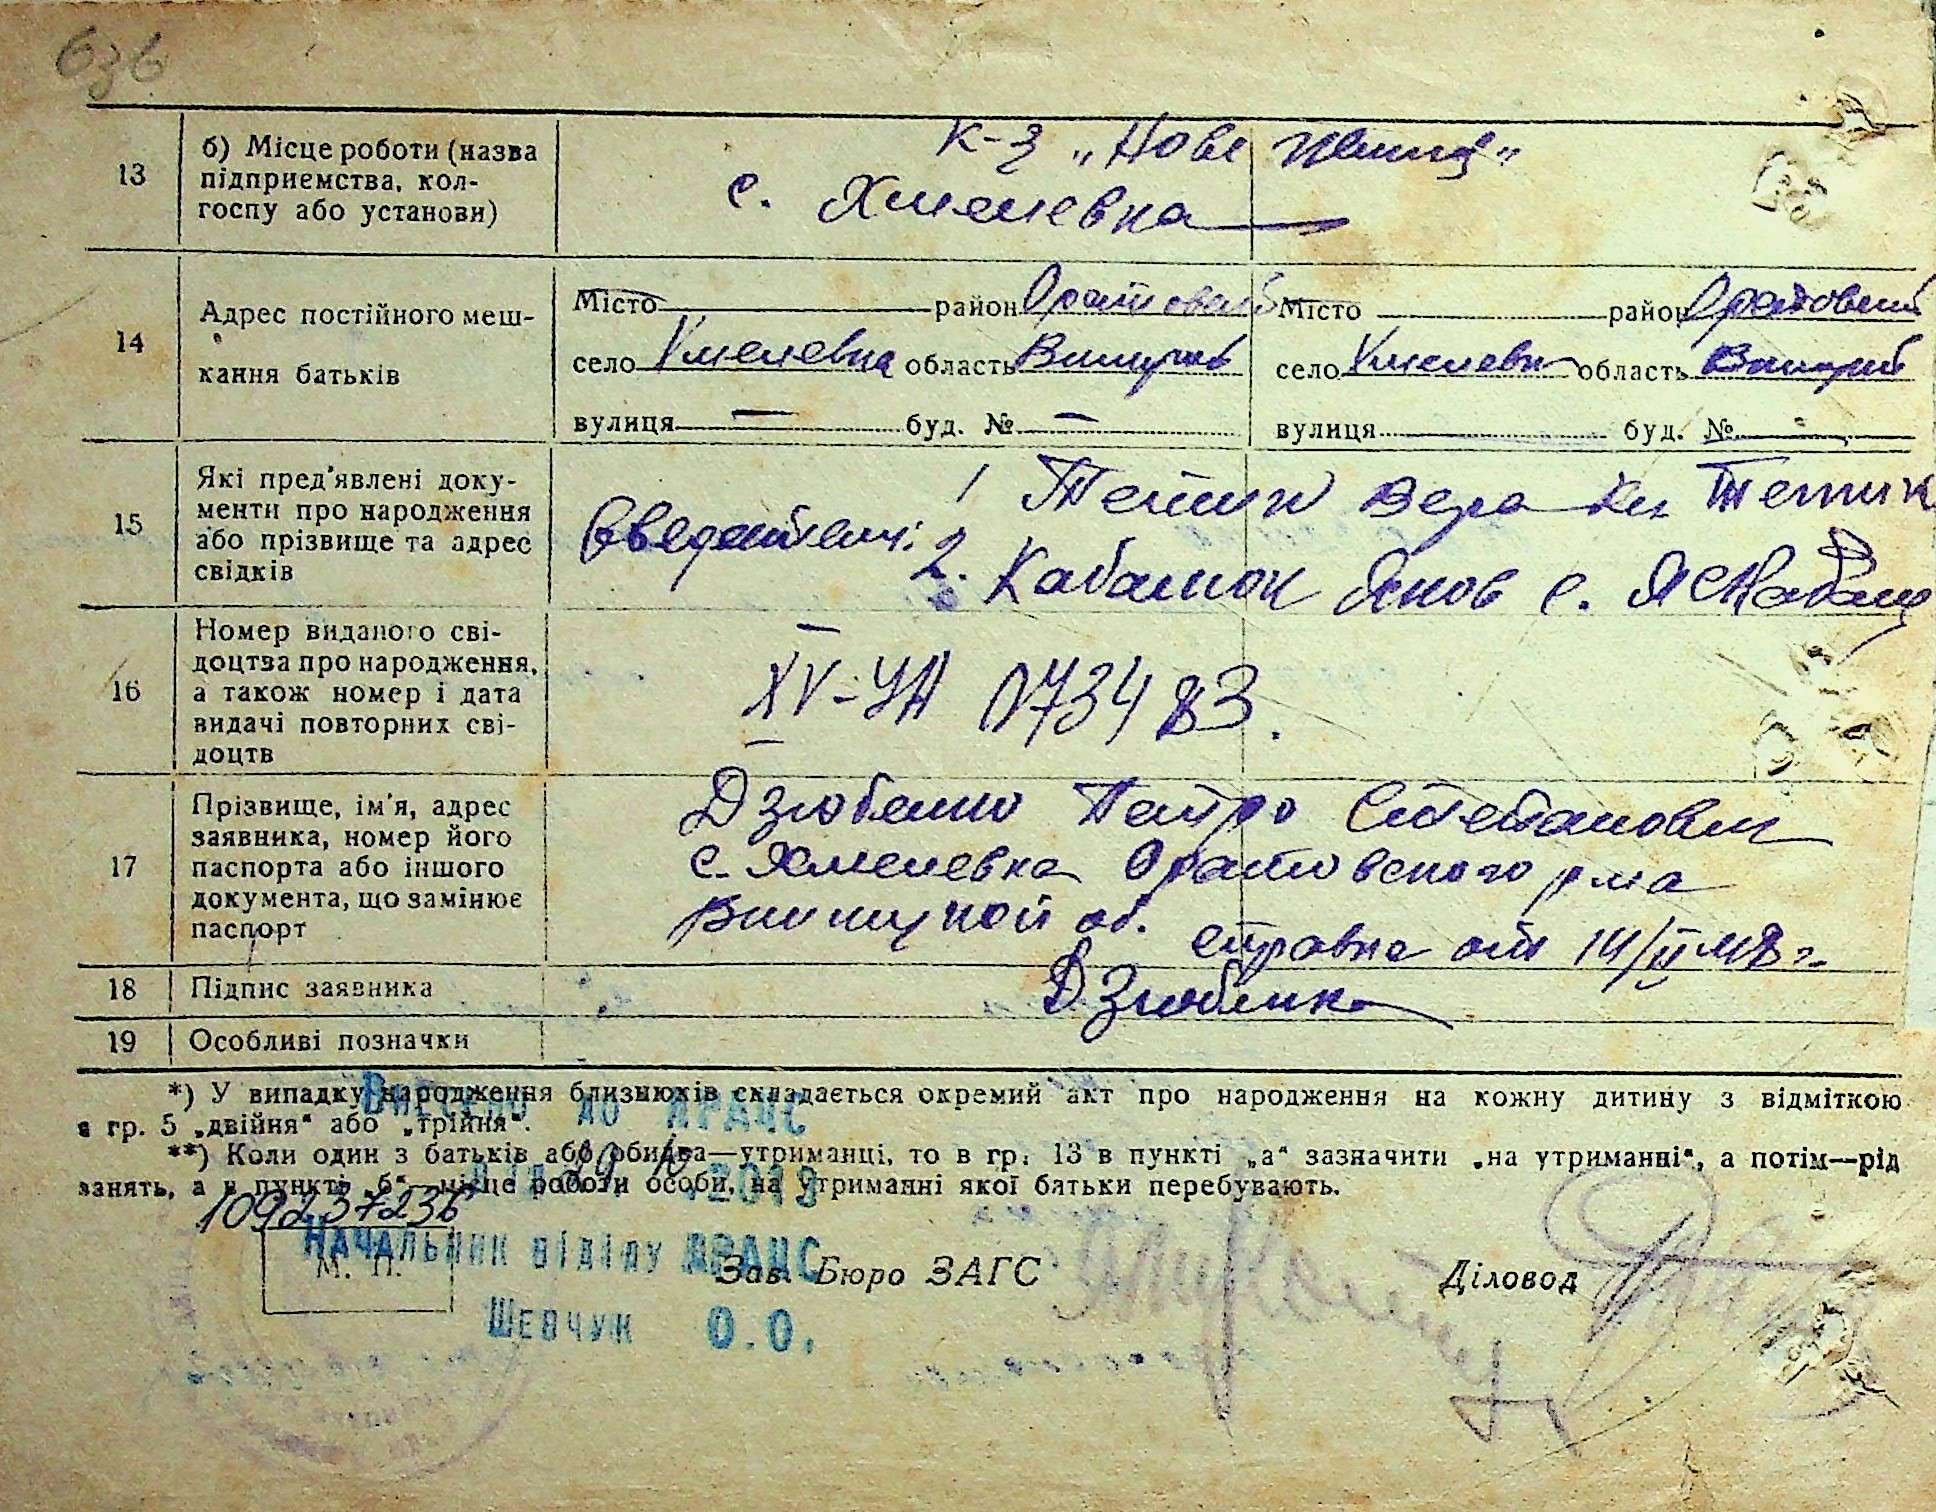 636
13
б) Місце роботи (назва
підприємства, кол-
госпу або установи)
к-з „Нове
с. Хмелевка
14
Адрес постійного меш-
кання батьків
Місто район Оратовский
село Хмелевка область Винницк
вулиця — буд. № —
Місто район Оратовский
село Хмелевка область
вулиця буд. №
15
Які пред'явлені доку-
менти про народження
або прізвище та адрес
свідків
1 Вера
2.
16
Номер виданого сві-
доцтва про народження,
а також номер і дата
видачі повторних сві-
доцтв
XV-УА 073483.
17
Прізвище, ім'я, адрес
заявника, номер його
паспорта або іншого
документа, що замінює
паспорт
Дзюбенко Петро Степанович
с. Хмелевка Оратовского р-на
Винницкой об.
справка от
18
Підпис заявника
Дзюбенко
19
Особливі позначки
*) У випадку народження близнюків складається окремий акт про народження на кожну дитину з відміткою
в гр. 5 „двійня“ або „трійня“.
**) Коли один з батьків або обидва—утриманці, то в гр. 13 в пункті „а“ зазначити „на утриманні“, а потім—рід
занять, а в пункті „б“—місце роботи особи, на утриманні якої батьки перебувають.
Внесено до ДРАЦС
2013
109237236
Начальник відділу ДРАЦС
Шевчук О.О.
М. П.
Зав. Бюро ЗАГС
Діловод